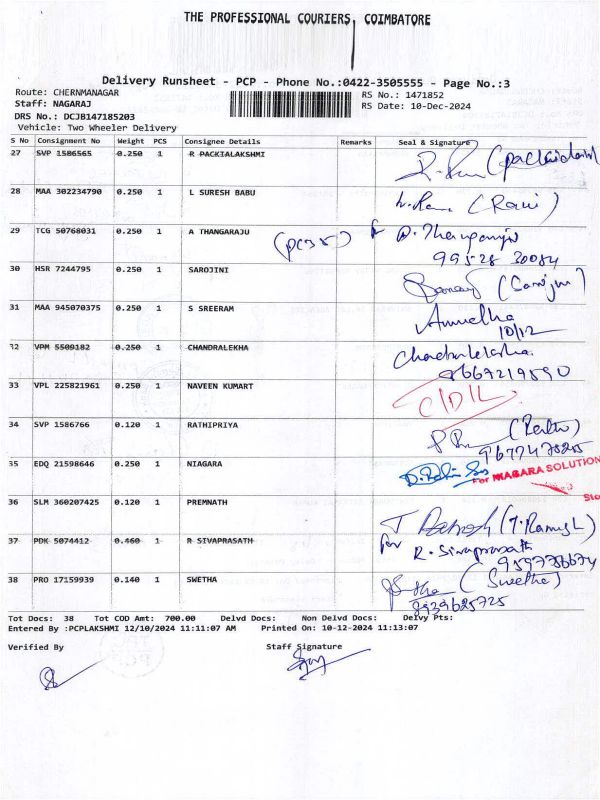 THE PROFESSIONAL COURIERS, COIMBATORE
Delivery Runsheet - PCP - Phone No.:0422-3505555 - Page No.:3
Route: CHERNMANAGAR
RS No.: 1471852
Staff: NAGARAJ
RS Date: 10-Dec-2024
DRS No.: DCJB147185203
Vehicle: Two Wheeler Delivery
S No Consignment No Weight PCS Consignee Details Remarks Seal & Signature
27 SVP 1586565 0.250 1 R PACKIALAKSHMI
28 MAA 302234790 0.250 1 L SURESH BABU (Ravi)
29 TCG 50768031 0.250 1 A THANGARAJU
99528 30084
30 HSR 7244795 0.250 1 SAROJINI
31 MAA 945070375 0.250 1 S SREERAM
10/12
32 VPM 5509182 0.250 1 CHANDRALEKHA
9667219590
33 VPL 225821961 0.250 1 NAVEEN KUMART
C/D/L
34 SVP 1586766 0.120 1 RATHIPRIYA
35 EDQ 21598646 0.250 1 NIAGARA For NIAGARA SOLUTION
36 SLM 360207425 0.120 1 PREMNATH
37 PDK 5074412 0.460 1 R SIVAPRASATH for R. Sivaprasath
38 PRO 17159939 0.140 1 SWETHA (Swetha)
8939625725
Tot Docs: 38 Tot COD Amt: 700.00 Delvd Docs: Non Delvd Docs: Delvy Pts:
Entered By :PCPLAKSHMI 12/10/2024 11:11:07 AM Printed On: 10-12-2024 11:13:07
Verified By Staff Signature